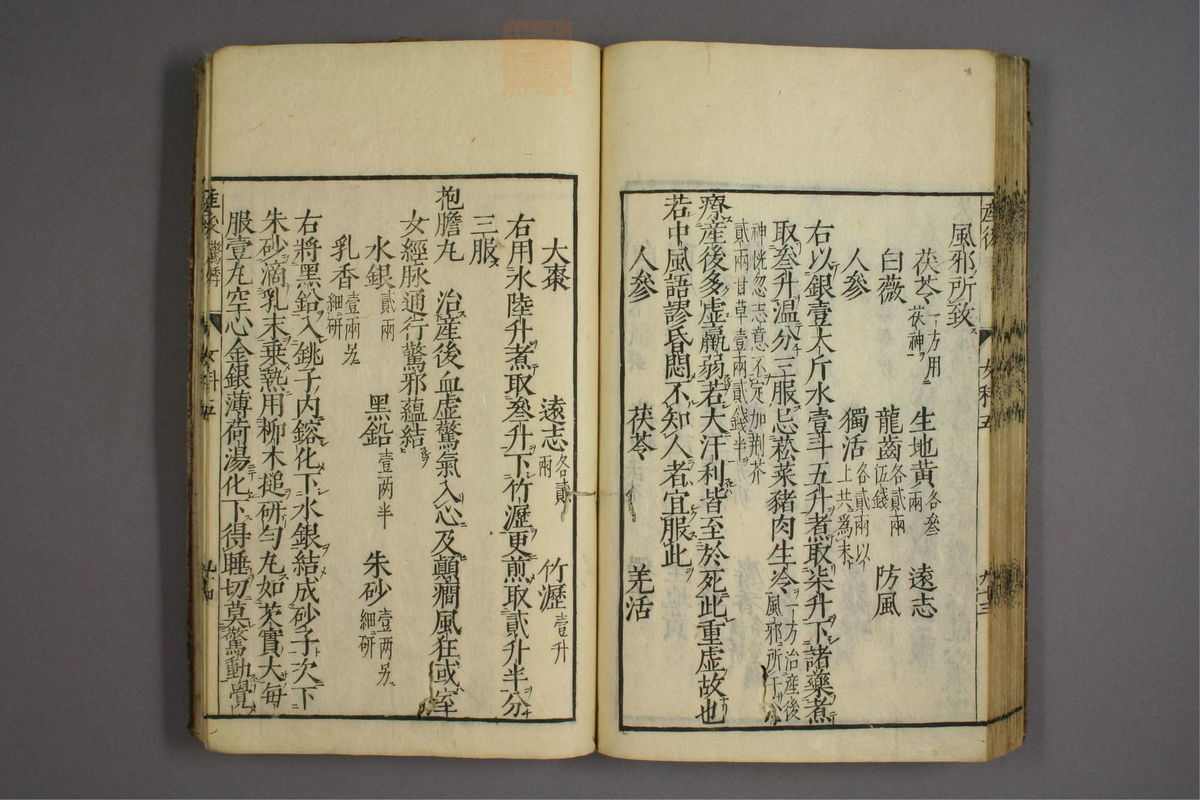 風邪所致
茯苓一方用茯神 生地黄各叁兩 遠志
白薇 龍齒各貳兩伍錢 防風
人參 獨活各貳兩以上共爲末
右以銀壹大斤水壹斗五升煮取柒升下諸藥煮
取叁升温分三服忌菘菜豬肉生冷一方治産後風邪所干
神恍忽志意不定加荆芥貳兩甘草壹兩貳錢半
療産後多虚羸弱若大汗利皆至於死此重虚故也
若中風語謬昏悶不知人者宜服此
人參 茯苓 羌活
大棗 遠志各貳兩 竹瀝壹升
右用水陸升煮取叁升下竹瀝更煎取貳升半分
三服
抱膽丸 治産後血虚驚氣入心及顛癇風狂或室
女經脉通行驚邪蘊結
水銀貳兩 黑鉛壹两半 朱砂壹两另細研
乳香壹兩另細研
右將黑鉛入銚子内鎔化下水銀結成砂子次下
朱砂滴乳末乘熱用柳木搥研匀丸如芡實大每
服壹丸空心金銀薄荷湯化下得睡切莫驚動覺
産後 驚悸 女科五